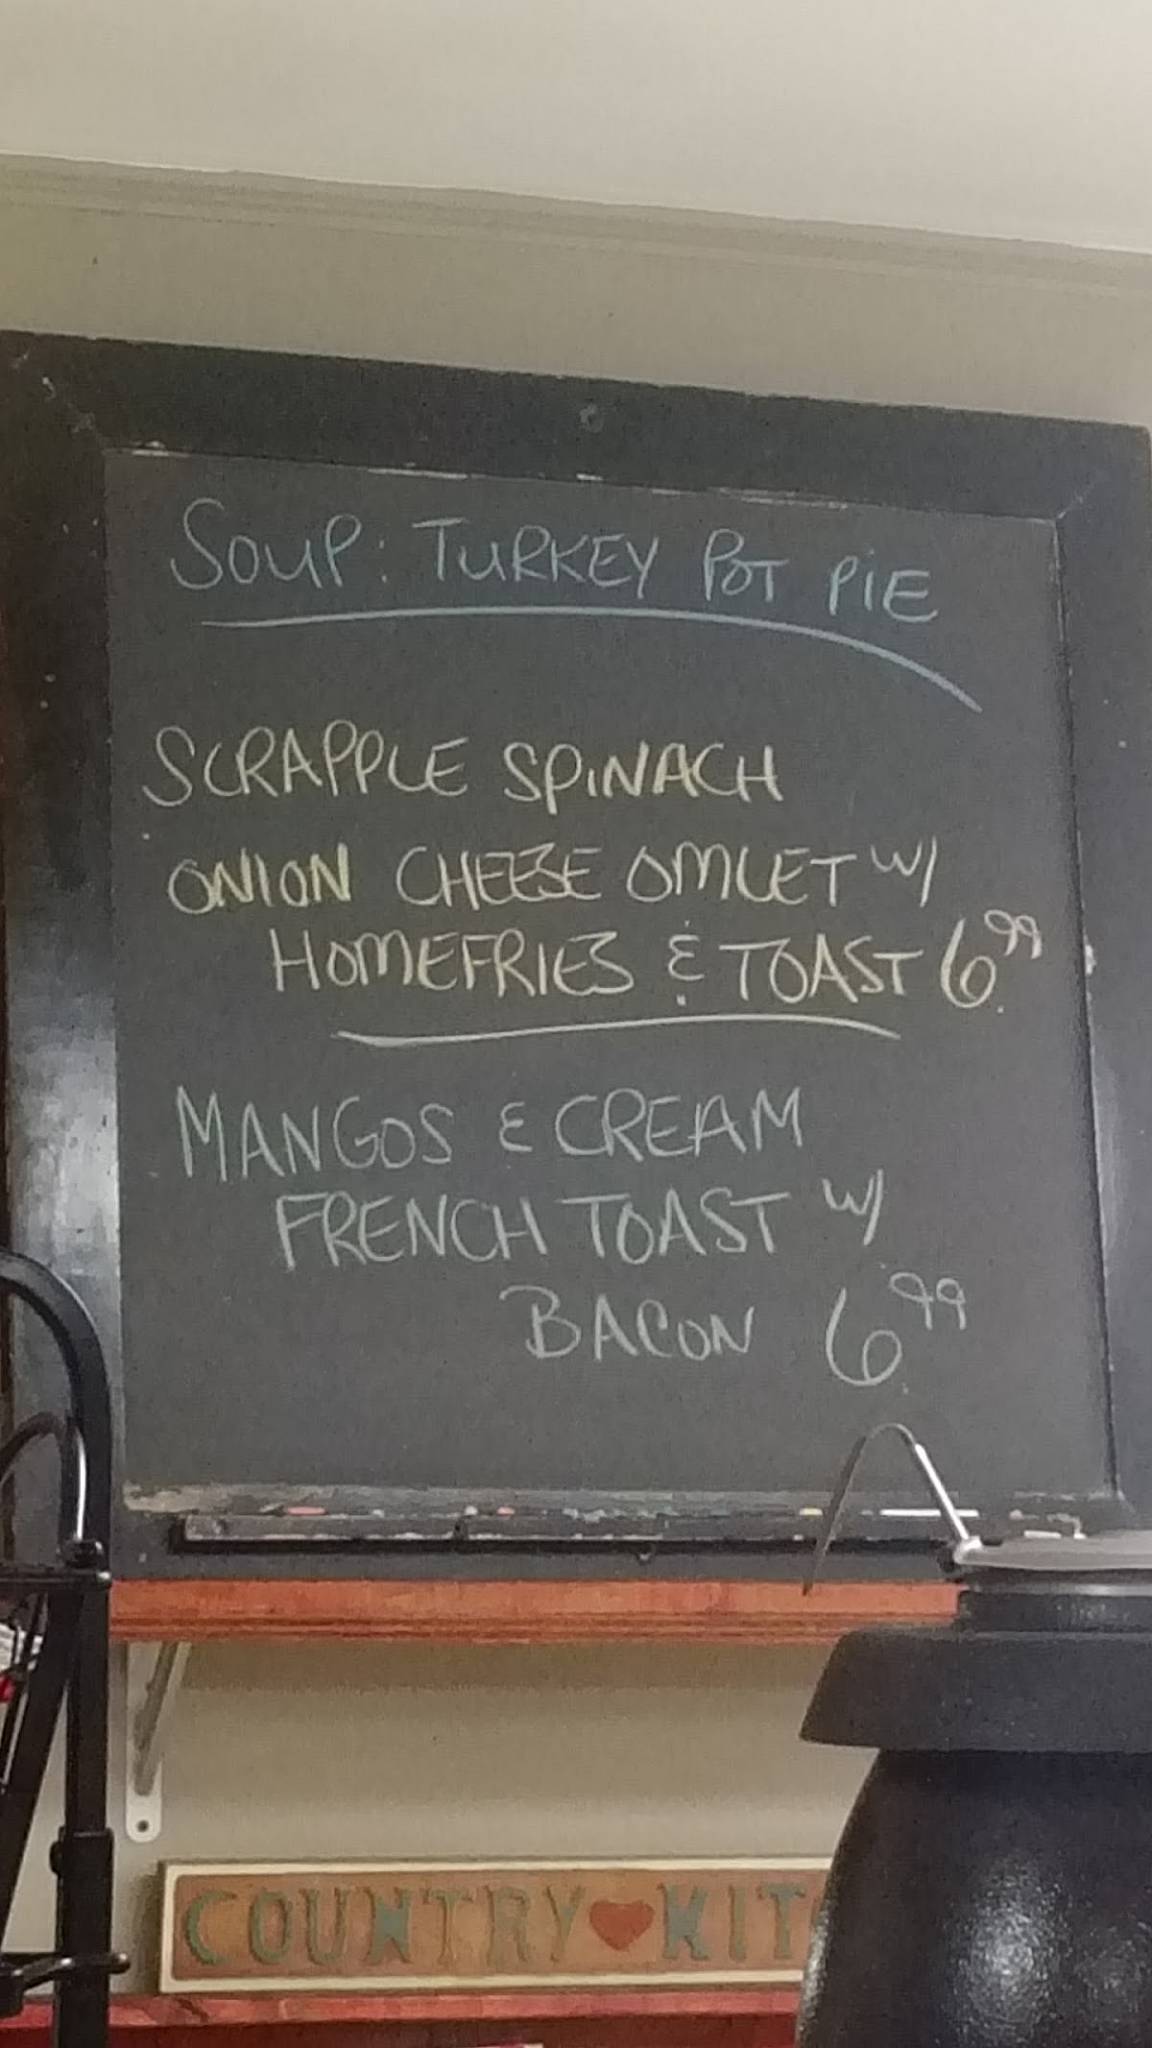 SOUP: TURKEY POT PIE
SCRAPPLE SPINACH
ONION CHEESE OMLET W/
HOMEFRIES & TOAST 6.99
MANGOS & CREAM
FRENCH TOAST W/
BACON 6.99
COUNTRY KIT